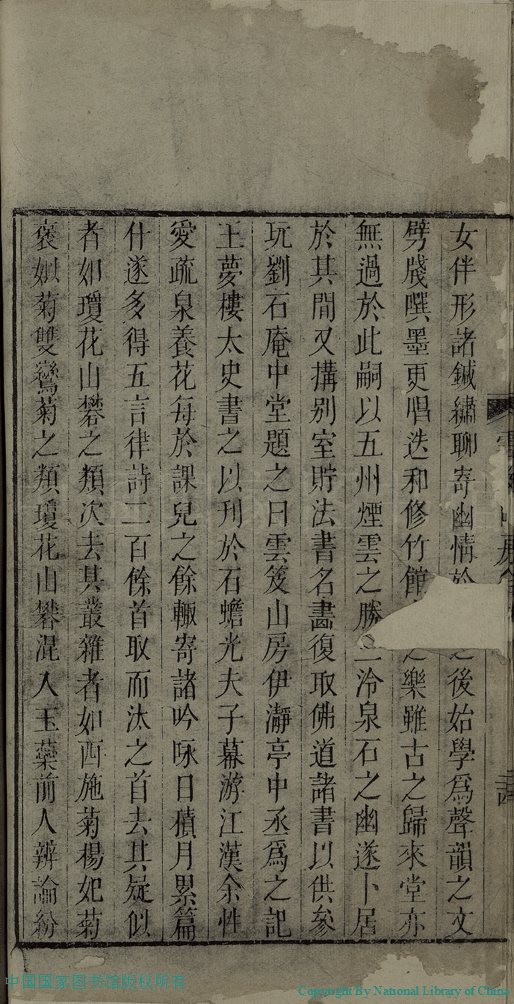 女伴形諸鍼繡聊寄幽情於之後始學為聲韻之文
劈牋噀墨更唱迭和修竹館之樂雖古之歸來堂亦
無過於此嗣以五州煙雲之勝三泠泉石之幽遂卜居
於其間又搆别室貯法書名畵復取佛道諸書以供參
玩劉石庵中堂題之曰雲笈山房伊瀞亭中丞為之記
王夢樓太史書之以刊於石蟾光夫子幕游江漢余性
愛疏泉養花每於課兒之餘輙寄諸吟咏日積月累篇
什遂多得五言律詩二百餘首取而汰之首去其疑似
者如瓊花山礬之類次去其叢雜者如西施菊楊妃菊
褒姒菊雙鸞菊之類瓊花山礬混入玉蘂前人辨論紛
中国国家图书馆版权所有
Copyright By National Library of China